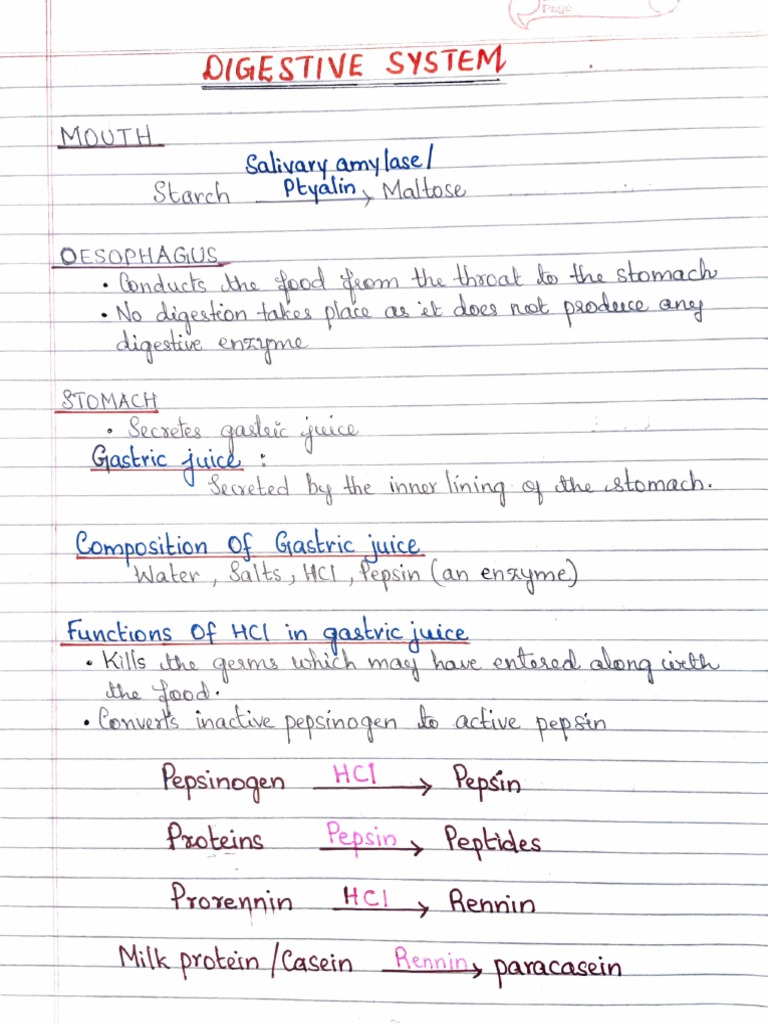 Page
DIGESTIVE SYSTEM
MOUTH
Salivary amylase/
Starch Ptyalin → Maltose
OESOPHAGUS
• Conducts the food from the throat to the stomach
• No digestion takes place as it does not produce any
digestive enzyme
STOMACH
• Secretes gastric juice
Gastric juice :
Secreted by the inner lining of the stomach.
Composition Of Gastric juice
Water, Salts, HCl, Pepsin (an enzyme)
Functions Of HCl in gastric juice
• Kills the germs which may have entered along with
the food.
• Converts inactive pepsinogen to active pepsin
Pepsinogen HCl → Pepsin
Proteins Pepsin → Peptides
Prorennin HCl → Rennin
Milk protein /Casein Rennin → paracasein